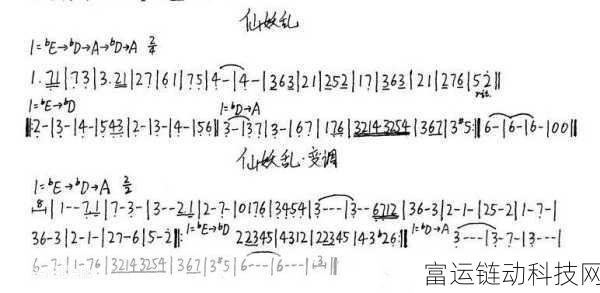 仙妖乱
1=ᵇE→ᵇD→A→ᵇD→A 2/4
1. 71|73|3.21|27|61|75|4-|4-|363|21|252|17|363|21|276|52‖
rit.
1=ᵇE→ᵇD 1=ᵇD→A
‖:2-|3-|4-|543|2-|3-|4-|56‖3-|37|3-|67|176|32143254|367|3#5:‖6-|6-|6-|00‖
仙妖乱·变调
1=ᵇE→ᵇD→A 2/2
8|1--71|7-3-|3--21|2-7-|0176|3454|3---|3--6712|36-3|2-1-|25-2|1-7-|
36-3|2-1-|27-6|5-2‖: 1=ᵇE→ᵇD 22345|4312|22345|43ᵇ26:‖ 1=ᵇD→A 3---|3-7-|3---|
6-7-|1-76|32143254|367|3#5|6---|6---|3‖
富运链动科技网